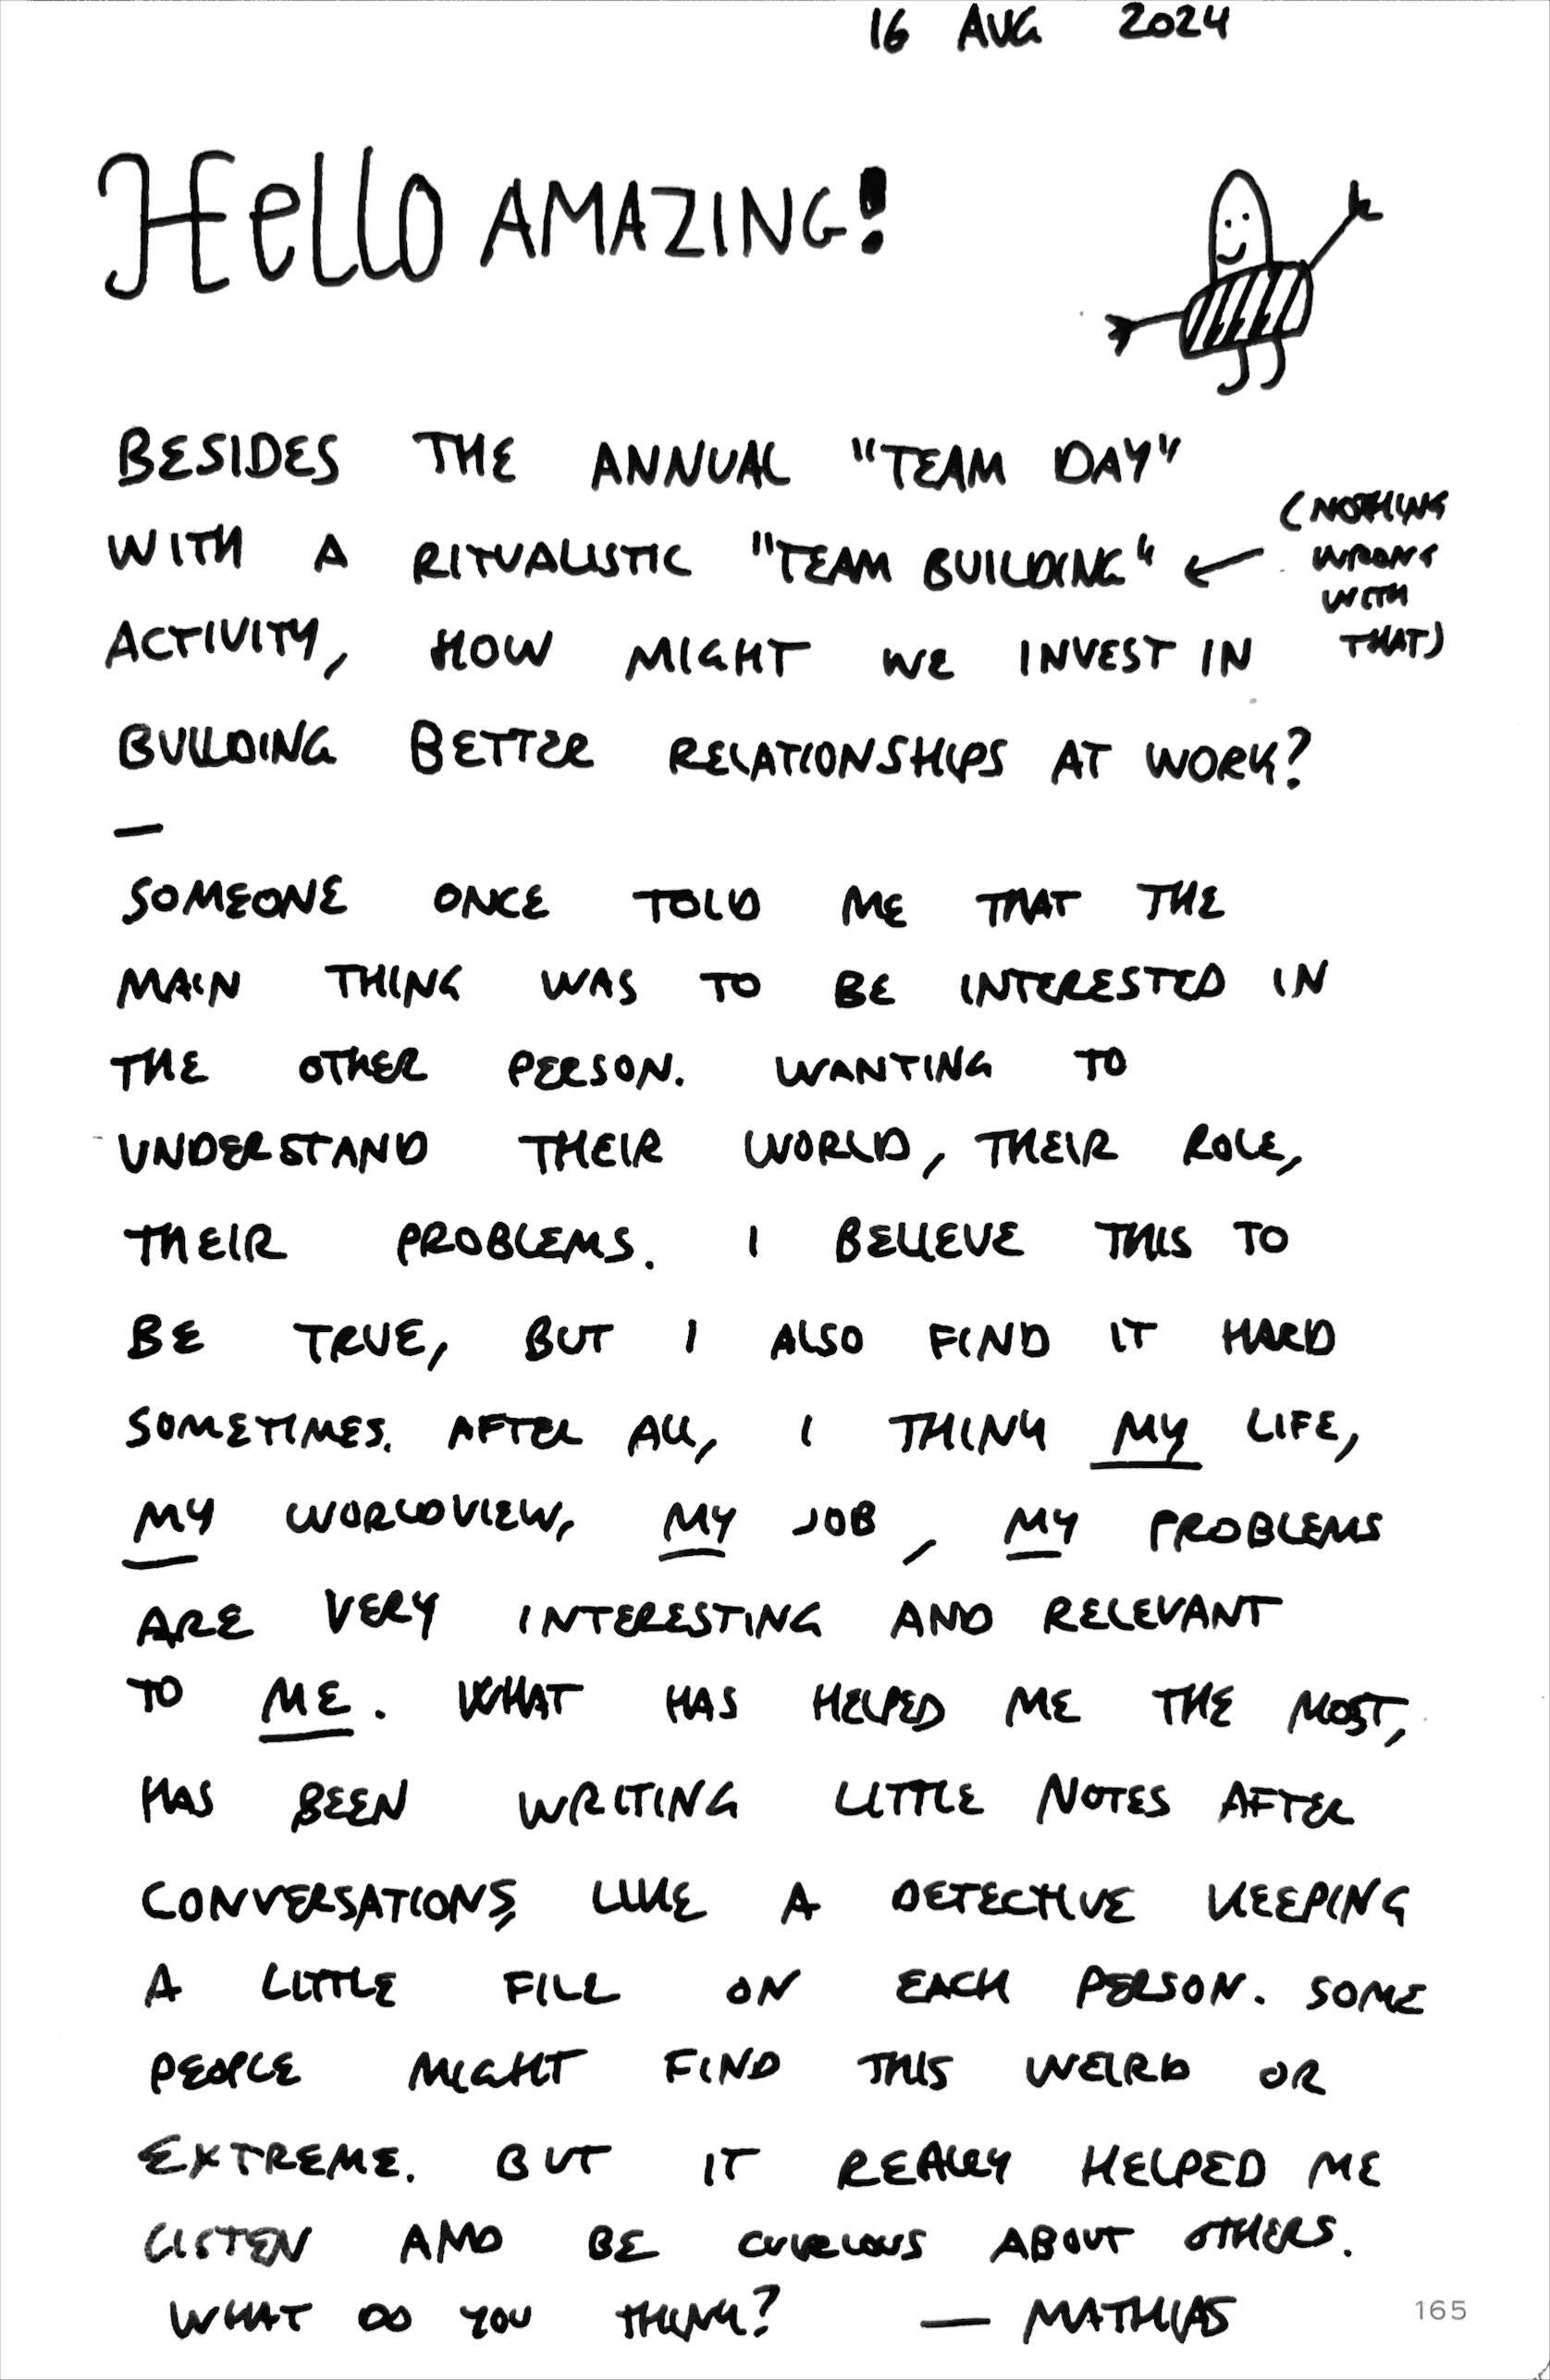 16 AUG 2024
Hello AMAZING!
BESIDES THE ANNUAL "TEAM DAY"
WITH A RITUALISTIC "TEAM BUILDING" ← (NOTHING
WRONG
WITH
THAT)
ACTIVITY, HOW MIGHT WE INVEST IN
BUILDING BETTER RELATIONSHIPS AT WORK?
—
SOMEONE ONCE TOLD ME THAT THE
MAIN THING WAS TO BE INTERESTED IN
THE OTHER PERSON. WANTING TO
UNDERSTAND THEIR WORLD, THEIR ROLE,
THEIR PROBLEMS. I BELIEVE THIS TO
BE TRUE, BUT I ALSO FIND IT HARD
SOMETIMES. AFTER ALL, I THINK MY LIFE,
MY WORLDVIEW, MY JOB, MY PROBLEMS
ARE VERY INTERESTING AND RELEVANT
TO ME. WHAT HAS HELPED ME THE MOST,
HAS BEEN WRITING LITTLE NOTES AFTER
CONVERSATIONS, LIKE A DETECTIVE KEEPING
A LITTLE FILE ON EACH PERSON. SOME
PEOPLE MIGHT FIND THIS WEIRD OR
EXTREME. BUT IT REALLY HELPED ME
LISTEN AND BE CURIOUS ABOUT OTHERS.
WHAT DO YOU THINK? — MATHIAS
165